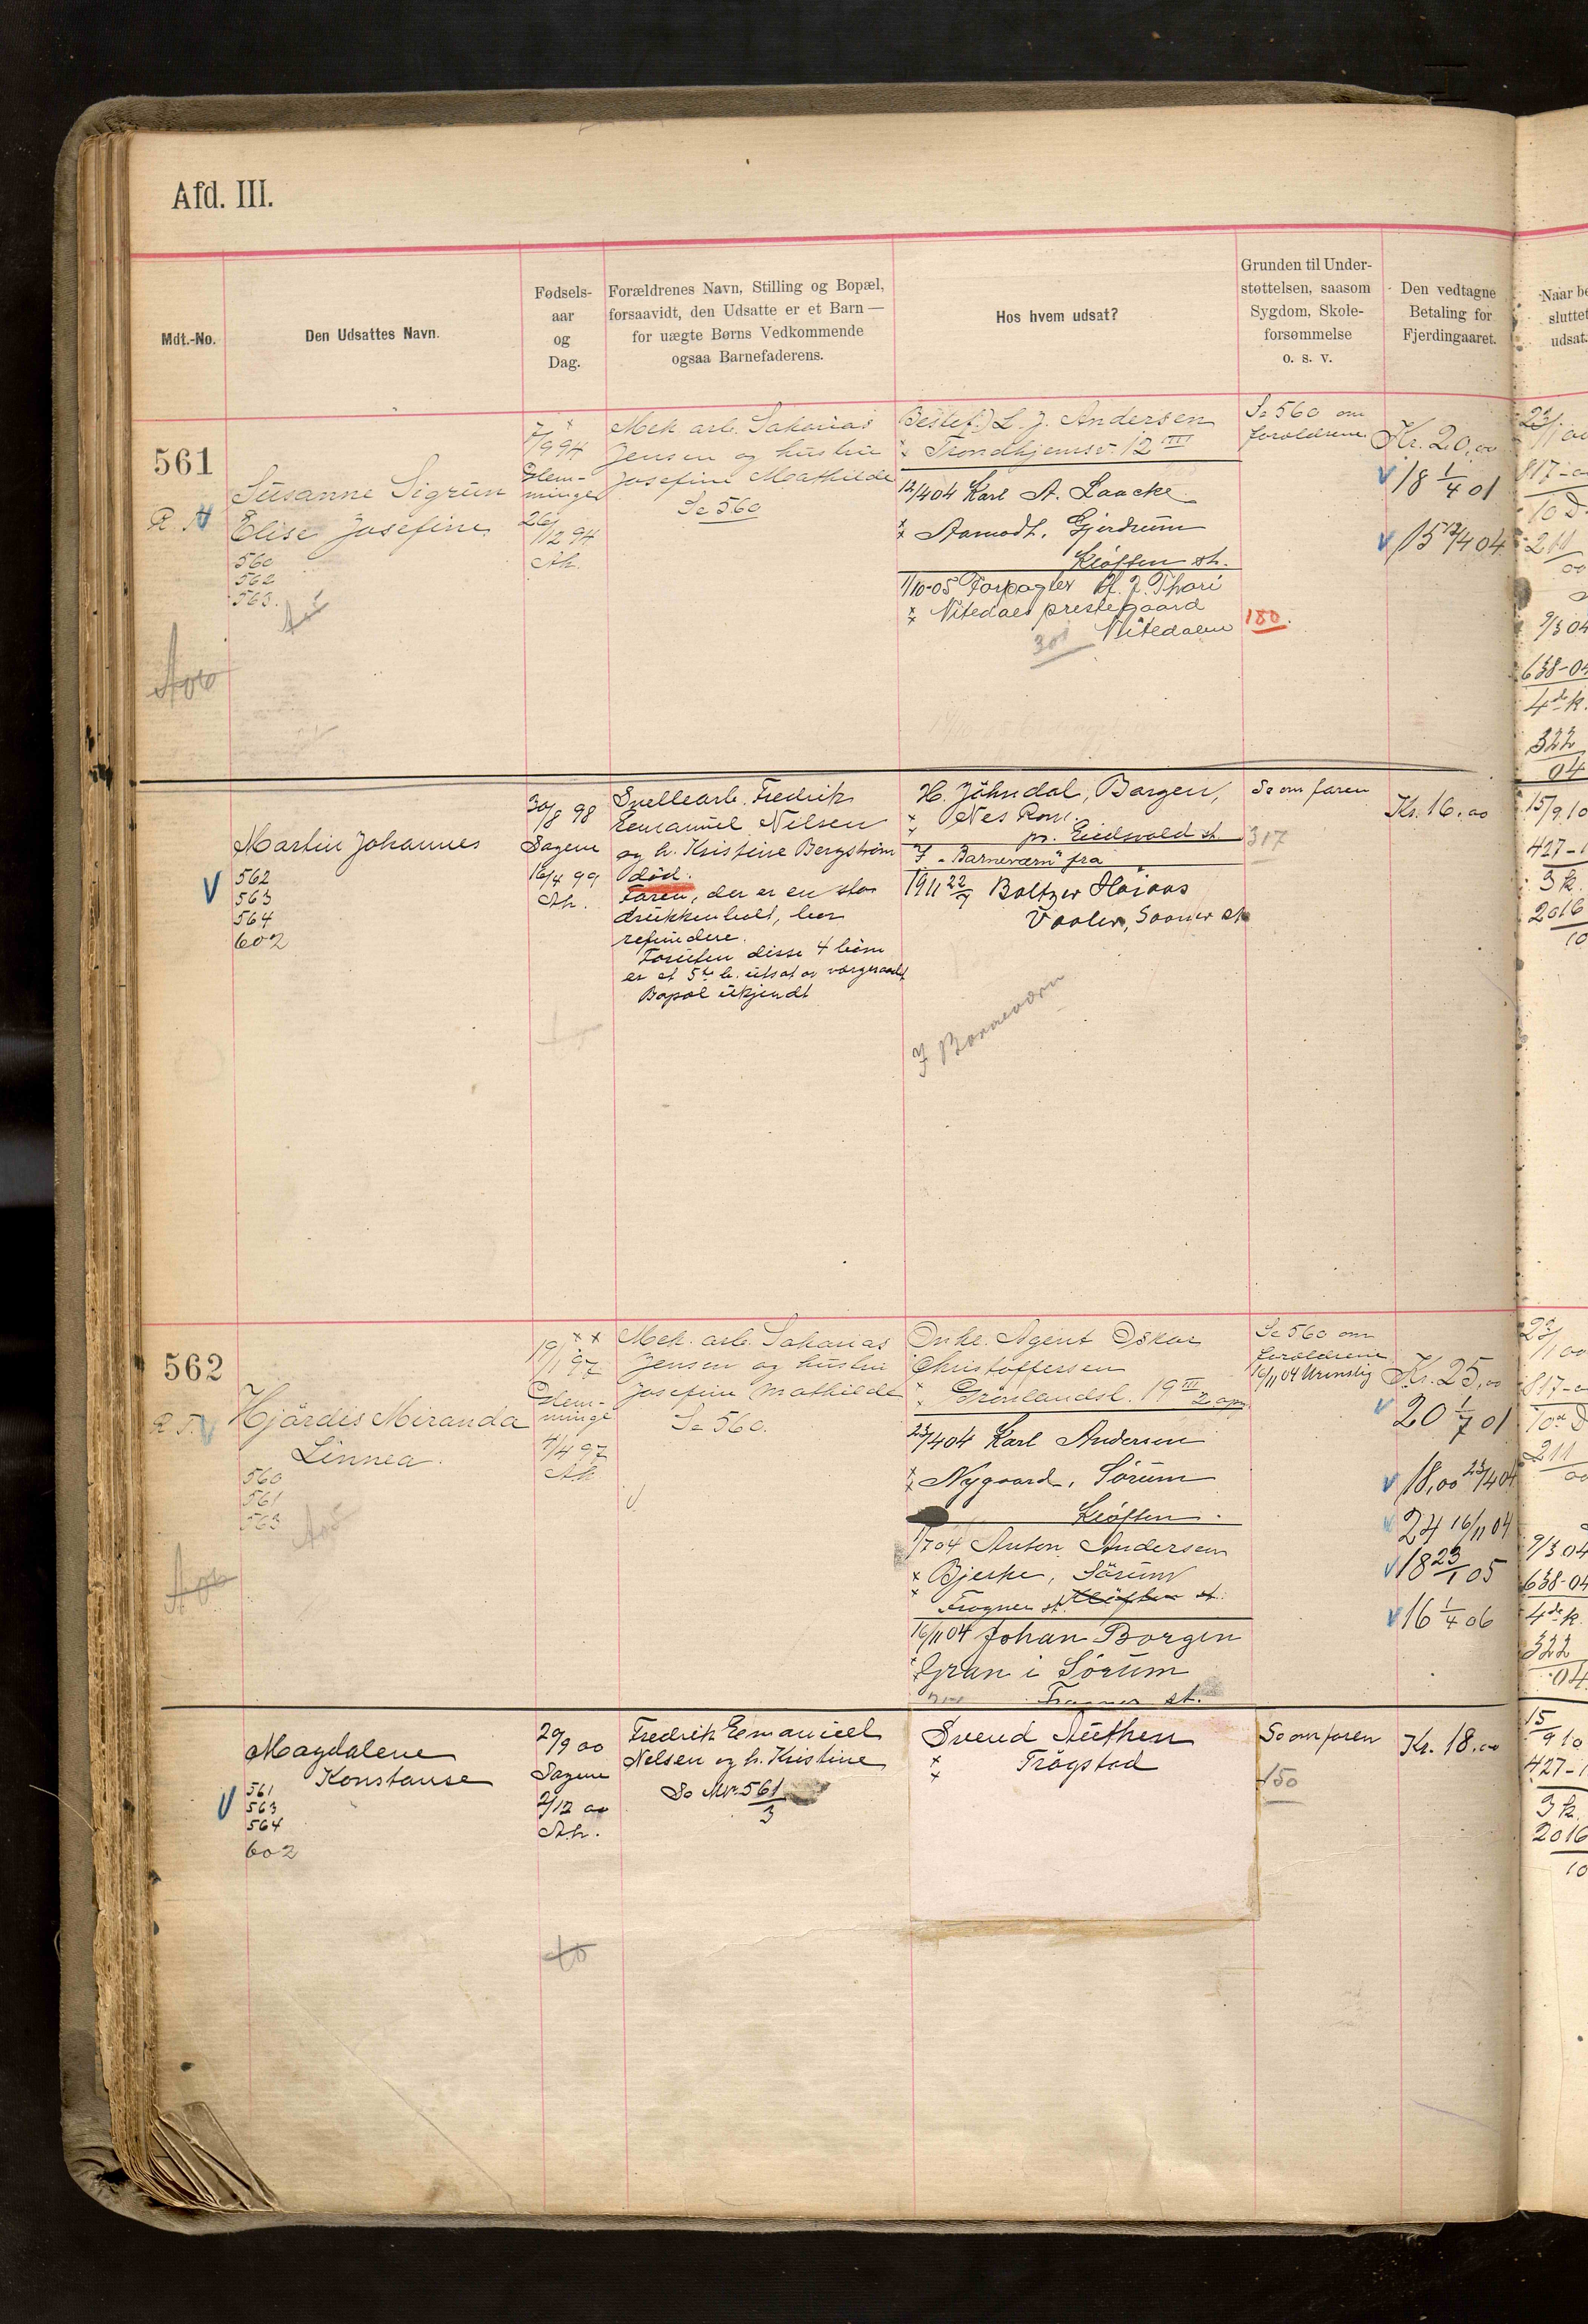 Afd. III.
Mdt.-No.
Den Udsattes Navn.
Fødsels-
aar
og
Dag.
Forældrenes Navn, Stilling og Bopæl,
forsaavidt, den Udsatte er et Barn —
for uægte Børns Vedkommende
ogsaa Barnefaderens.
Hos hvem udsat?
Grunden til Under-
støttelsen, saasom
Sygdom, Skole-
forsømmelse
o. s. v.
Den vedtagne
Betaling for
Fjerdingaaret.
Naar be
sluttet
udsat.
561
Susanne Sigrun
Elise Josefine
560
562
563.
7/9 94
Glem-
minge
26/12 94
Ak.
Mek. arb. Sakarias
Jensen og hustru
Josefine Mathilde
Se 560
Bestef.) L. J. Andersen
Trondhjemsv. 12 III
12/4 04 Karl A. Laache
Aamodt, Gjerdrum
Kløften st.
1/10-05 Forpagter H. J. Thori
Nitedals prestegaard
Nitedalen
301
Se 560 om
forældrene
180.
Kr. 20,00
18 1/4 01
15 12/4 04
23/1 00
817-0
10 D.
211
00
9/3 04
638-04
4de k.
322
04
Martin Johannes
562
563
564
602
30/8 98
Sagene
16/4 99
Ak.
Spellearb. Fredrik
Emanuel Nilsen
og h. Kristine Bergstrøm
død.
Faren, der er en stor
drukkenbolt, bør
refundere.
Foruten disse 4 børn
er et 5te b. utsat av vergeraadet
Bopæl ukjendt
H. Jöhndal, Borgen,
Nes Rom.
pr. Eidsvold st.
I "Barneværn" fra
1911 22/7 Baltzer Høiaas
Vaaler, Sooner st
I Barneværn
Se om faren
317
Kr. 16.00
15/9 10
427-1
3 k.
2016
10
562
Hjördis Miranda
Linnea.
560
561
563
19/1 97
Glem-
minge
4/4 97
Ak
Mek. arb. Sakarias
Jensen og hustru
Josefine Mathilde
Se 560.
Onke. Agent Oskar
Christoffersen
Grønlandsl. 19 III 2 opg
23/4 04 Karl Andersen
Nygaard, Sørum
Kløften.
1/7 04 Anton Andersen
Bjerke, Sörum
Frogner st. Kløften st.
16/11 04 Johan Borgen
Gran i Sørum
Frogner st.
Se 560 om
forældrene
16/11 04 Urinslig
Kr. 25,00
20 1/7 01
18,00 23/4 04
24 16/11 04
18 23/1 05
16 1/4 06
23/1 00
817-0
10de D
211
00
9/3 04
638-04
4de k.
322
04
Magdalene
Konstanse
561
563
564
602
29/9 00
Sagene
2/12 00
Ak.
Fredrik Emanuel
Nelsen og h. Kristine
Se Nr. 561/3
Svend Authen
Trögstad
Se om faren
150
Kr. 18.00
15/9 10
427-1
3 k.
2016
10